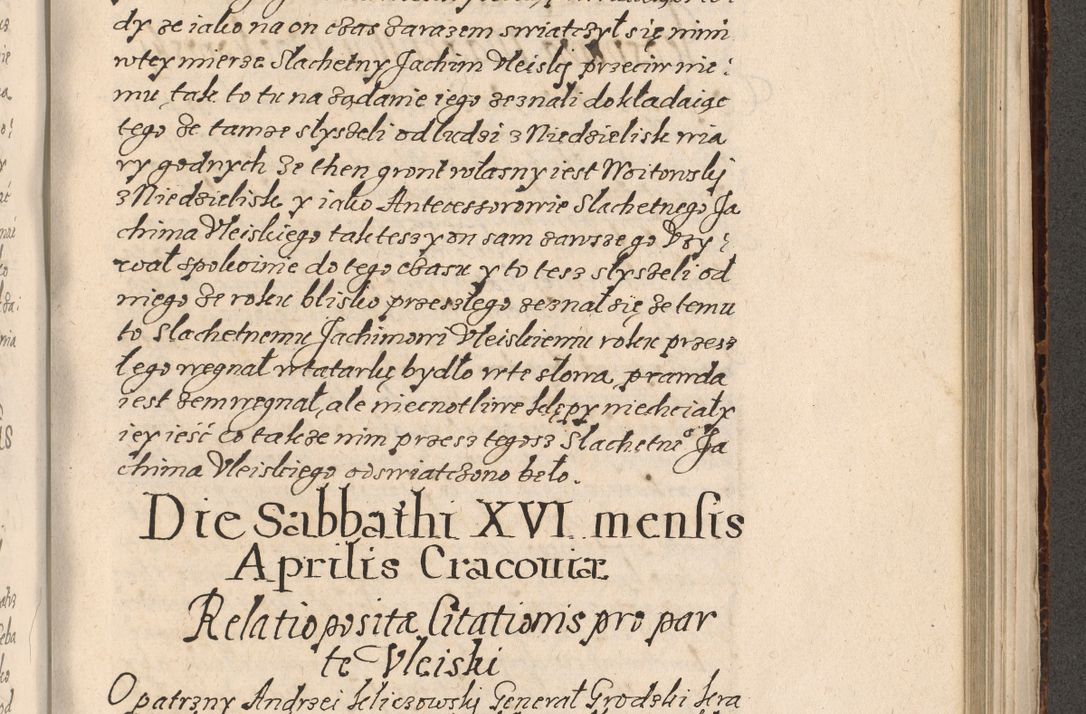 dy że iako na on czas zarazem swiatczył się nimi
wtey mierze Slachetny Jachim Uleiskj przeciw nie:
mu tak to tu na ządanie iego zeznali dokładaiąc
tego że tamże słyszeli od ludzi z Niedzielisk wia
ry godnych że then gront własny iest Woitowskj
z Niedzielisk y iako Antecessorowie Slachetnego Ja
chima Uleiskiego tak tesz y on sam zawsze go Vży:
wał spokoinie do tego czasu y to tesz słyszeli od
niego że roku blisko przeszłego zeznał się że temu
to Slachetnemu Jachimowi Uleiskiemu roku przesz
łego wegnał w tatarkę bydło w te słowa, prawda
iest żem wegnał, ale niecnotliwe klępy niechciały
iey ieść co także nim przesz tegosz Slachetneº Ja
chima Uleiskiego oświatczono beło.
Die Sabbathi XVI mensis
Aprilis Cracouiæ
Relatio positæ Citationis pro par
te Uleiski
Opatrzny Andrzei Kliczowskj Generał Grodzki kra